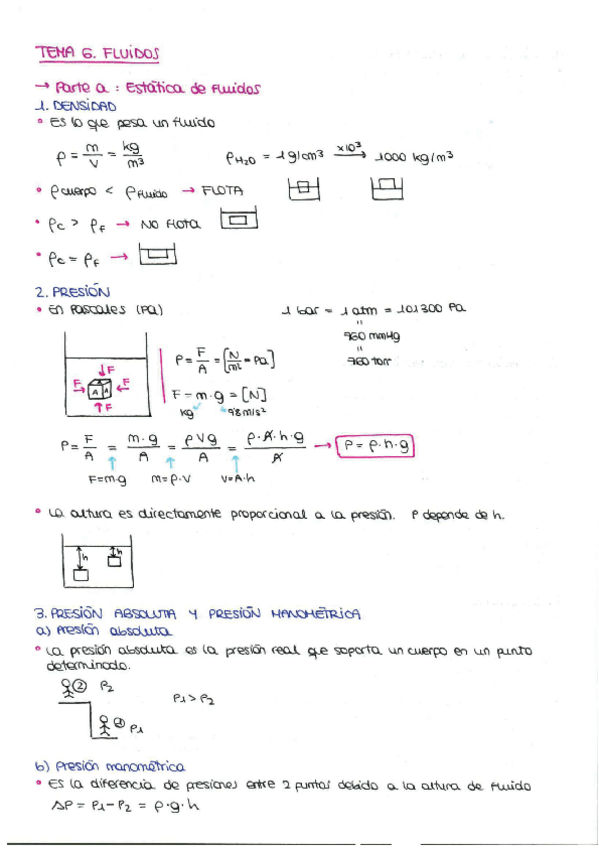 TEMA 6. FLUIDOS
→ Parte a : Estática de Fluidos
1. DENSIDAD
• Es lo que pesa un fluido
ρ = m/V = kg/m³    ρH₂O = 1 g/cm³ —×10³→ 1000 kg/m³
• ρcuerpo < ρFluido → FLOTA
• ρc > ρF → NO Flota
• ρc = ρF →
2. PRESIÓN
• En Pascales (Pa)    1 bar = 1 atm = 101300 Pa
"
760 mmHg
"
760 torr
F F F F A A
P = F/A = [N/m² = Pa]
F = m·g = [N]
kg 9'8 m/s²
P = F/A = m·g/A = ρVg/A = ρ·A·h·g/A → P = ρ·h·g
F=m·g    m=ρ·V    V=A·h
• La altura es directamente proporcional a la presión. P depende de h.
h h
3. PRESIÓN ABSOLUTA Y PRESIÓN MANOMÉTRICA
a) Presión absoluta
• La presión absoluta es la presión real que soporta un cuerpo en un punto
determinado.
② P₂    P₁ > P₂
① P₁
b) Presión manométrica
• Es la diferencia de presiones entre 2 puntos debido a la altura de fluido
ΔP = P₁ - P₂ = ρ·g·h